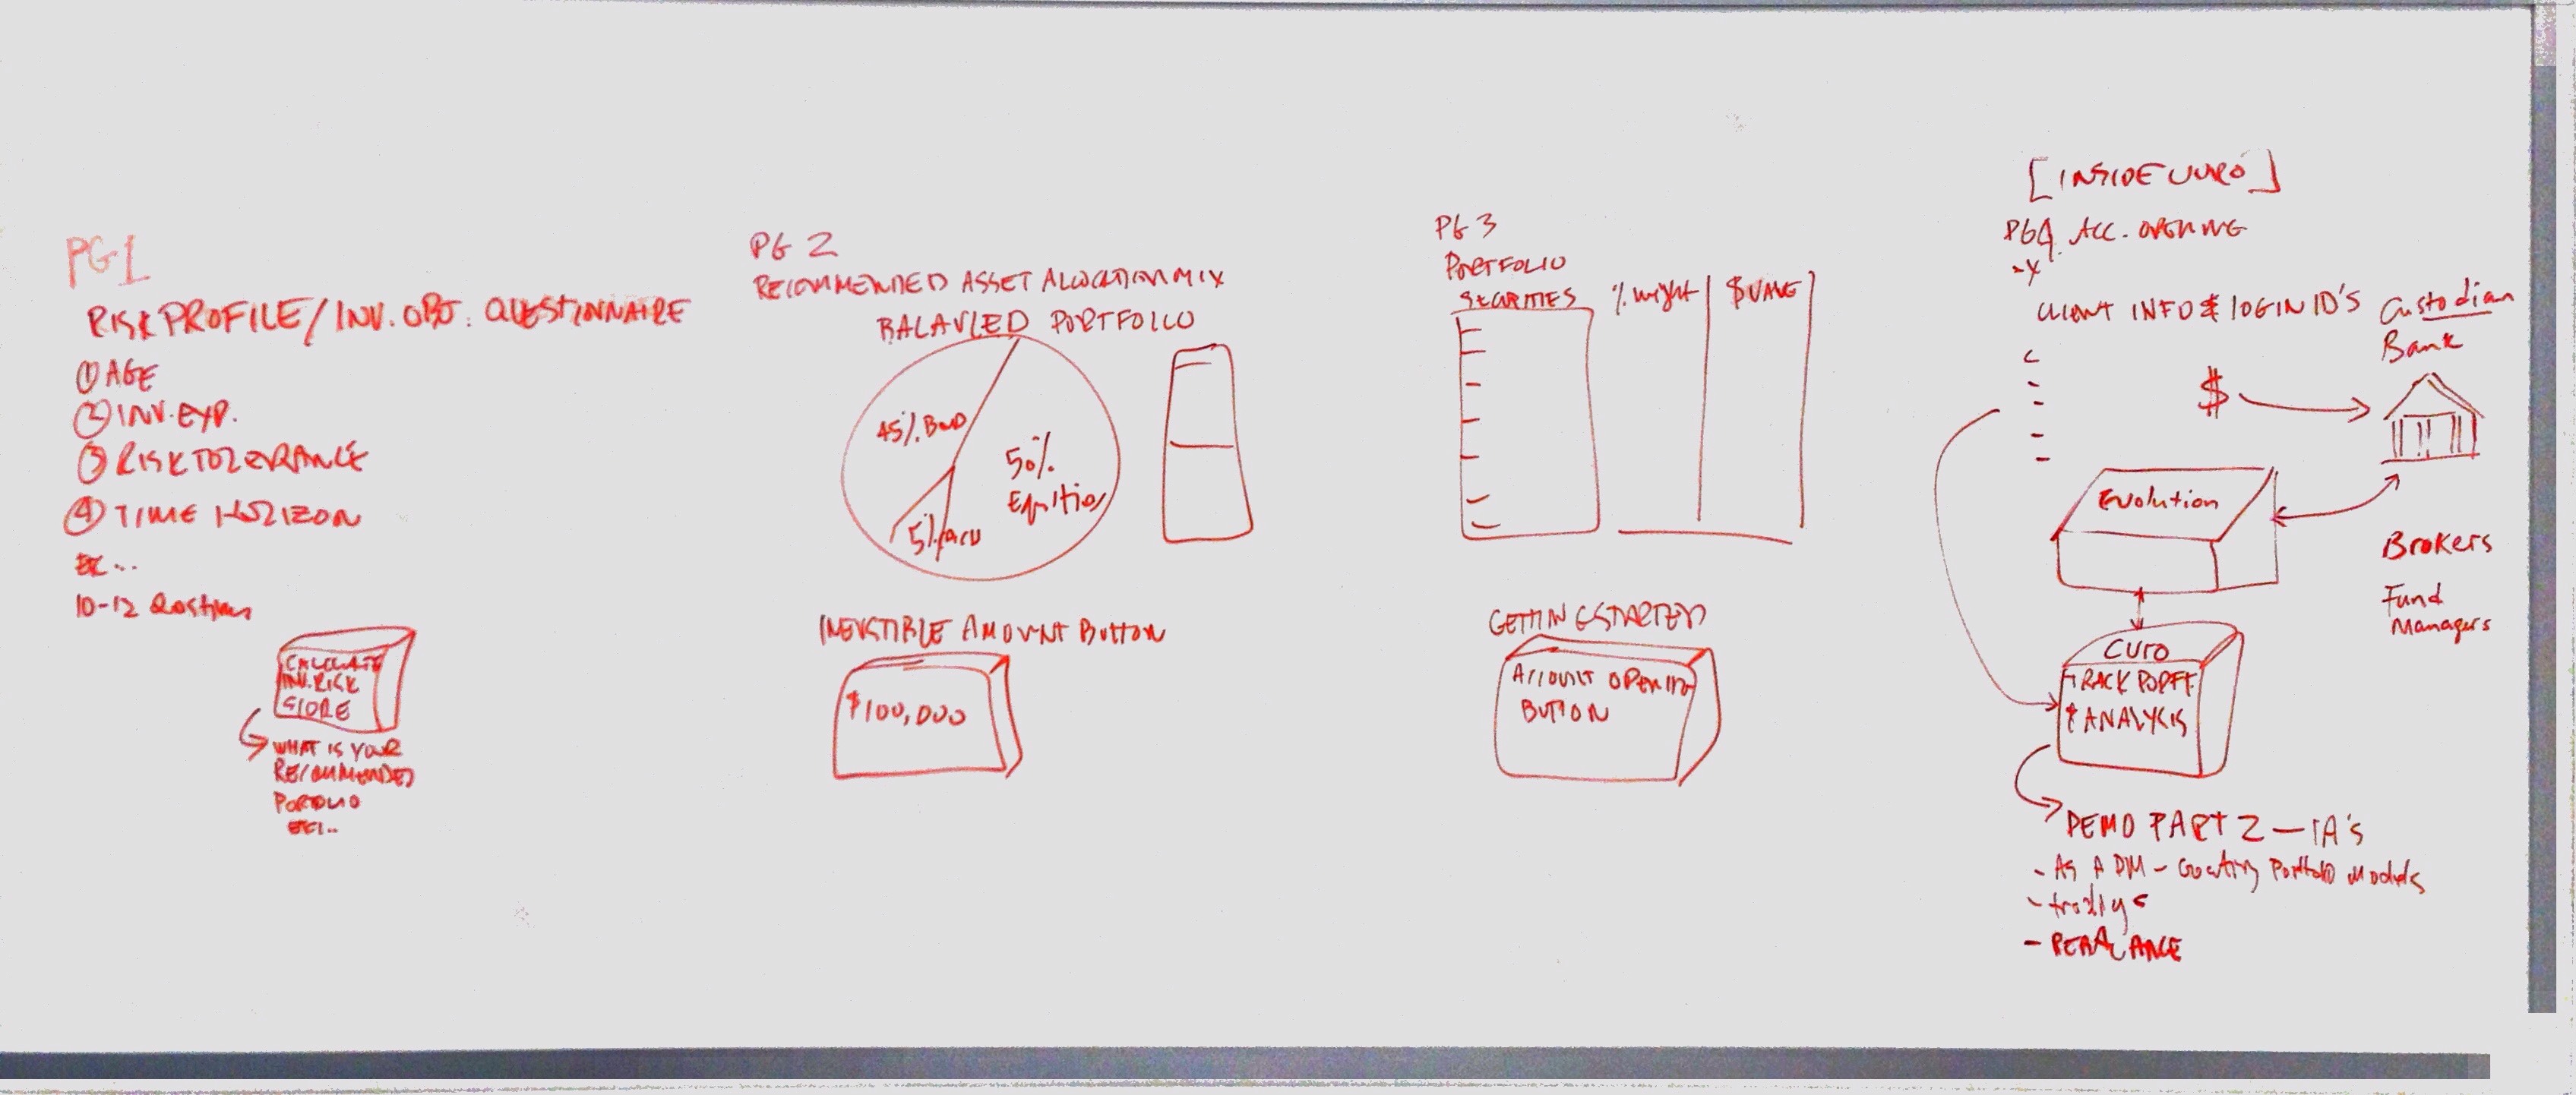 PG 1
RISK PROFILE/INV. OBJ. QUESTIONNAIRE
① AGE
② INV. EXP.
③ RISK TOLERANCE
④ TIME HORIZON
ETC...
10-12 Questions
CALCULATE
INV. RISK
SCORE
WHAT IS YOUR
RECOMMENDED
PORTFOLIO
ETC..
PG 2
RECOMMENDED ASSET ALLOCATION MIX
BALANCED PORTFOLIO
45% BOND
50%
Equities
5%
INEVSTIBLE AMOUNT BUTTON
$100,000
PG 3
PORTFOLIO
SECURITIES
% weight
$ VALUE
GETTING STARTED
ACCOUNT OPENING
BUTTON
[INSIDE CURO]
PG 4 ACC. OPENING
CLIENT INFO & LOGIN ID'S
$
Custodian
Bank
Evolution
Brokers
Fund
Managers
CURO
TRACK PORTF.
& ANALYSIS
DEMO PART 2 – IA'S
- AS A PM - Creating Portfolio Models
- REBALANCE